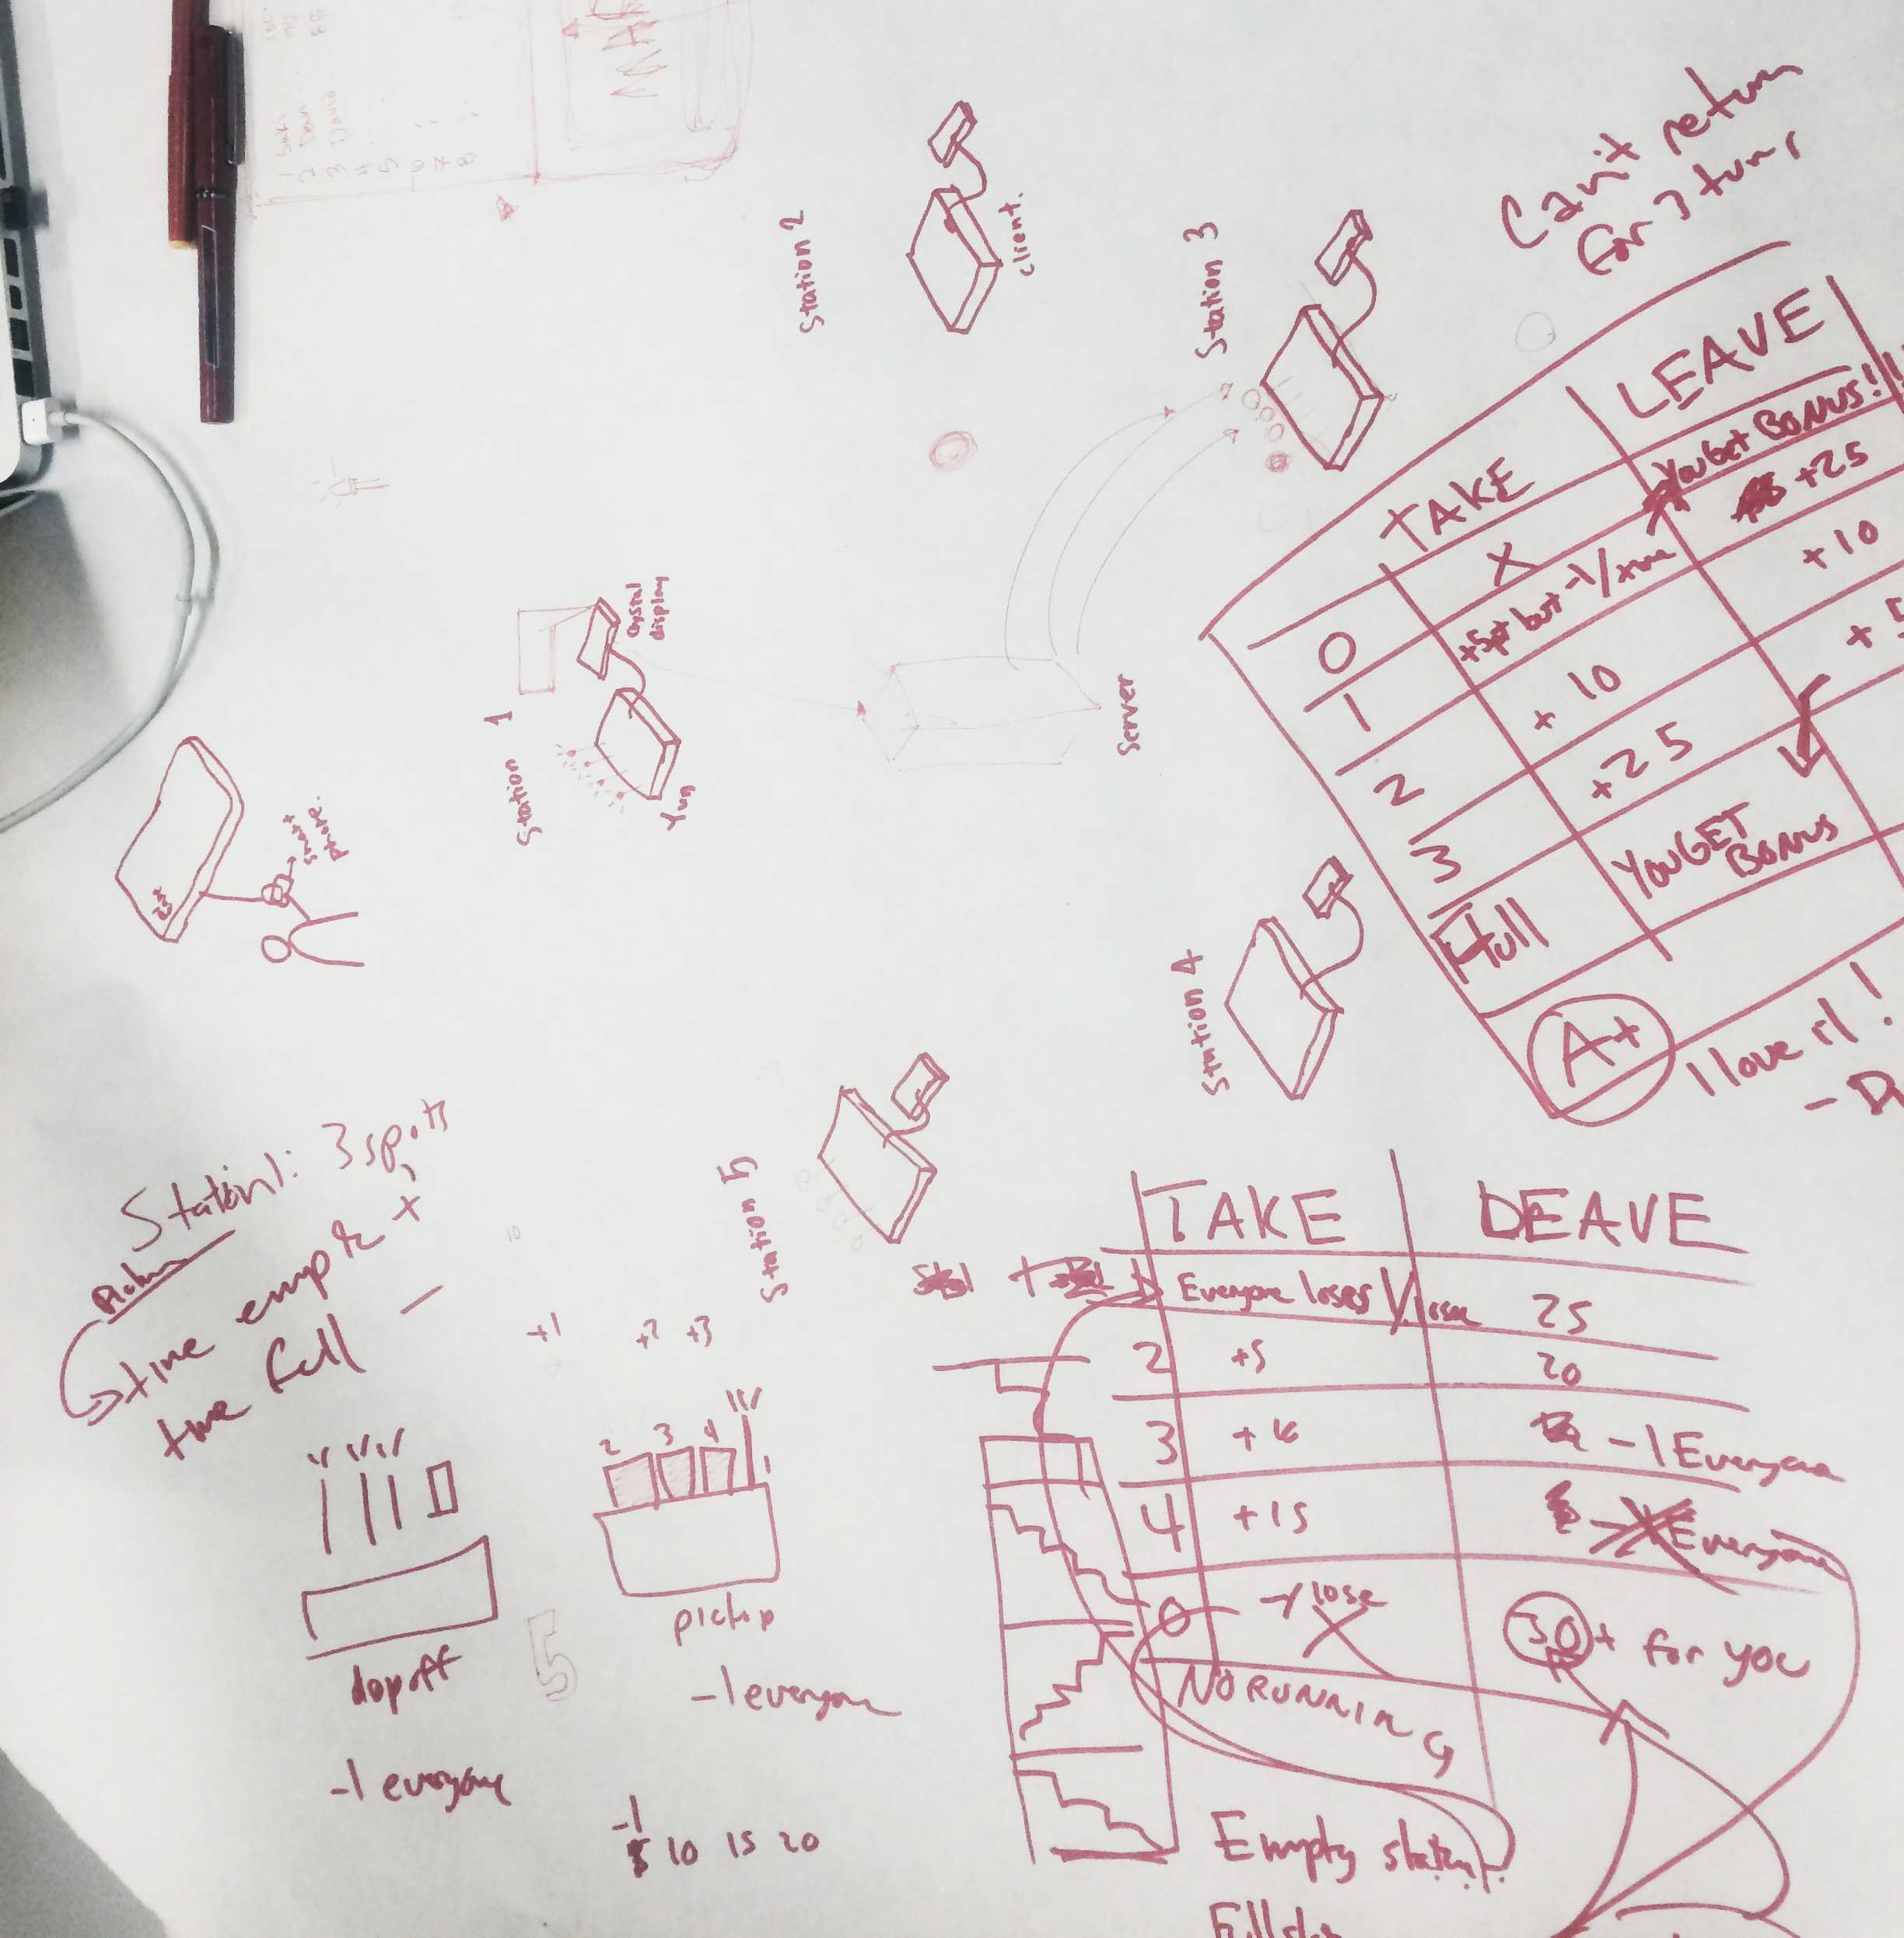 1
2 Dan
3 David
4
5
6
7
8
Station 2
client.
Station 3
Can't return
for 3 turns
TAKE
LEAVE
0
X
You Get BONUS!
1
+5pt but -1/time
+25
2
+10
+10
3
+25
Full
YOU GET
BONUS
A+
I love it!
Station 1
crystal
display
Yun
Server
smart
phone.
Station 4
Station 5
Station 1: 3 spots
time empty +
time full -
+1
+2
+3
2
3
4
dropoff
-1 everyone
5
pickup
-1 everyone
-1
5 10 15 20
TAKE
DEAVE
1
Everyone loses 1/time
25
2
+5
20
3
-1 Everyone
4
+15
Everyone
0
-1/lose
30+ for you
NO RUNNING
Empty station